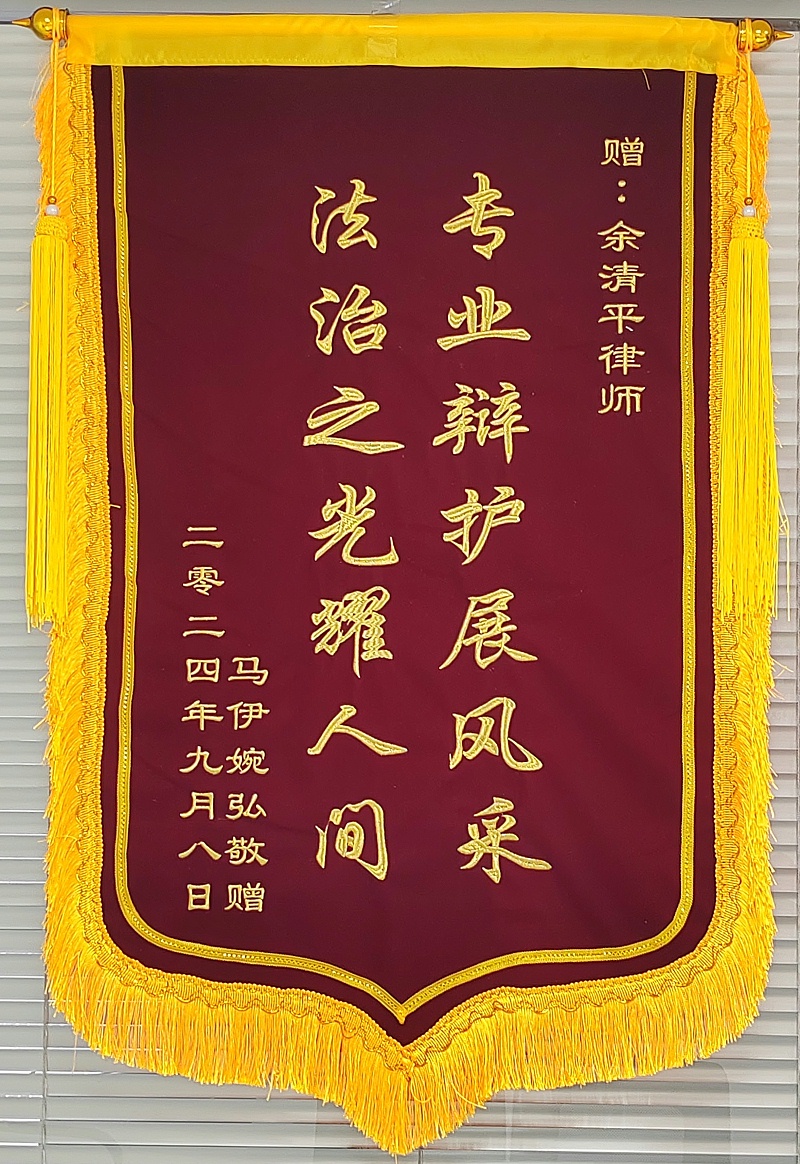 赠：余清平律师
专业辩护展风采
法治之光耀人间
马伊婉弘敬赠
二零二四年九月八日